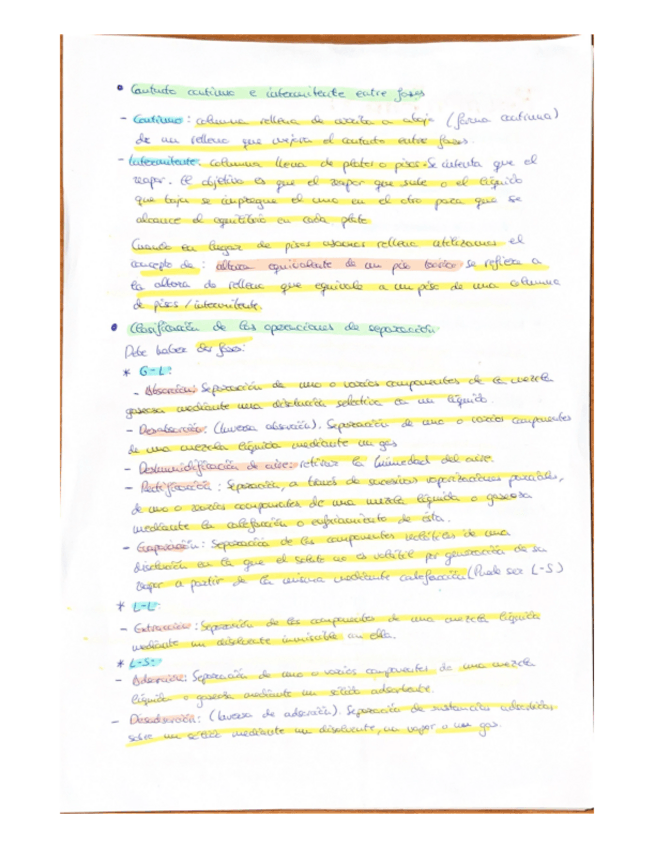 • Contacto continuo e intermitente entre fases
- Continuo: columna rellena de arriba a abajo (forma continua)
de un relleno que mejora el contacto entre fases.
- Intermitente: columna llena de platos o pisos. Se intenta que el
vapor. El objetivo es que el vapor que sube o el líquido
que baja se impregne el uno en el otro para que se
alcance el equilibrio en cada plato
Cuando en lugar de pisos usamos relleno utilizamos el
concepto de: altura equivalente de un piso teórico se refiere a
la altura de relleno que equivale a un piso de una columna
de pisos / intermitente.
• Clasificación de las operaciones de separación
Debe haber dos fases:
* G-L:
- Absorción: Separación de uno o varios componentes de la mezcla
gaseosa mediante una disolución selectiva en un líquido.
- Desabsorción: (Inversa absorción). Separación de uno o varios componentes
de una mezcla líquida mediante un gas
- Deshumidificación de aire: retirar la humedad del aire.
- Rectificación: Separación, a través de sucesivas vaporizaciones parciales,
de uno o varios componentes de una mezcla líquida o gaseosa
mediante la calefacción o enfriamiento de ésta.
- Evaporación: Separación de los componentes volátiles de una
disolución en la que el soluto no es volátil por generación de su
vapor a partir de la misma mediante calefacción (Puede ser L-S)
* L-L:
- Extracción: Separación de los componentes de una mezcla líquida
mediante un disolvente inmiscible con ella.
* L-S:
- Adsorción: Separación de uno o varios componentes de una mezcla
líquida o gaseosa mediante un sólido adsorbente.
- Desadsorción: (Inversa de adsorción). Separación de sustancias adsorbidas
sobre un sólido mediante un disolvente, un vapor o un gas.